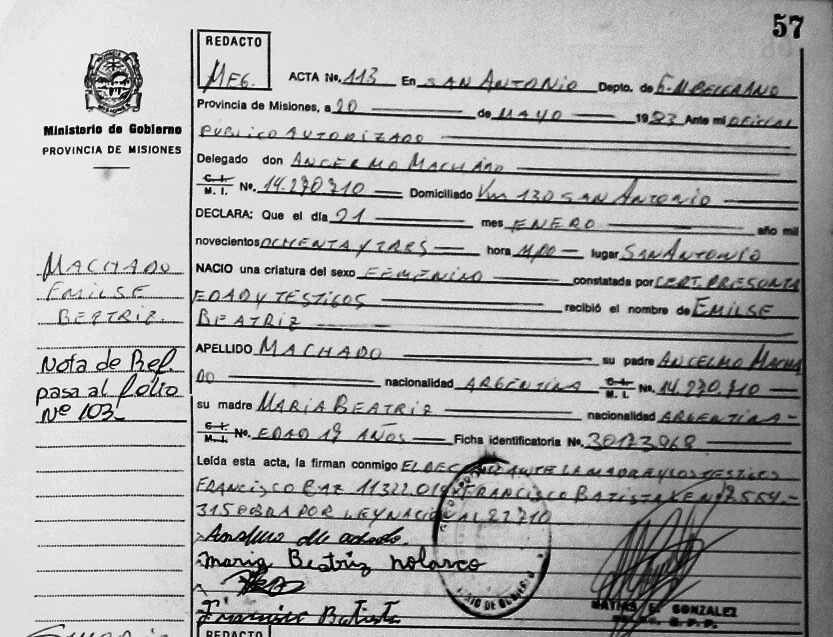 57
REDACTO
MEG. ACTA No. 113 En SAN ANTONIO Depto. de G-M BELGRANO
Provincia de Misiones, a 20 de MAYO 1983 Ante mi OFICIAL
PUBLICO AUTORIZADO
Delegado don ANCERMO MACHADO
C. I.
M. I. No. 14.270.710 Domiciliado Km 130 SAN ANTONIO
DECLARA: Que el día 21 mes ENERO año mil
novecientos OCHENTA Y TRES hora lugar SAN ANTONIO
NACIO una criatura del sexo FEMENINO constatada por CERT. PRESUNTA
EDAD Y TESTIGOS recibió el nombre de EMILSE
BEATRIZ
APELLIDO MACHADO su padre ANCELMO MACHA
DO nacionalidad ARGENTINA C. I.
M. I. No. 14.270.710
su madre MARIA BEATRIZ nacionalidad ARGENTINA-
C. I.
M. I. No. EDAD 19 AÑOS Ficha identificatoria No. 30173968
Leída esta acta, la firman conmigo EL DEC ANTE LA MADRE Y LOS TESTIGOS
FRANCISCO FRANCISCO BATISTA
315 OBRA POR LEY NACIONAL
Maria Beatriz nolasco
Francisco Batista
MATIAS E. GONZALEZ
REDACTO
Ministerio de Gobierno
PROVINCIA DE MISIONES
MACHADO
EMILSE
BEATRIZ.
Nota de Ref.
pasa al folio
Nº 103-